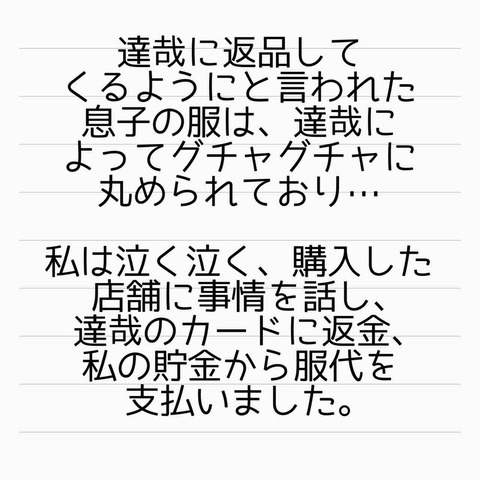 達哉に返品して
くるようにと言われた
息子の服は、達哉に
よってグチャグチャに
丸められており…
私は泣く泣く、購入した
店舗に事情を話し、
達哉のカードに返金、
私の貯金から服代を
支払いました。